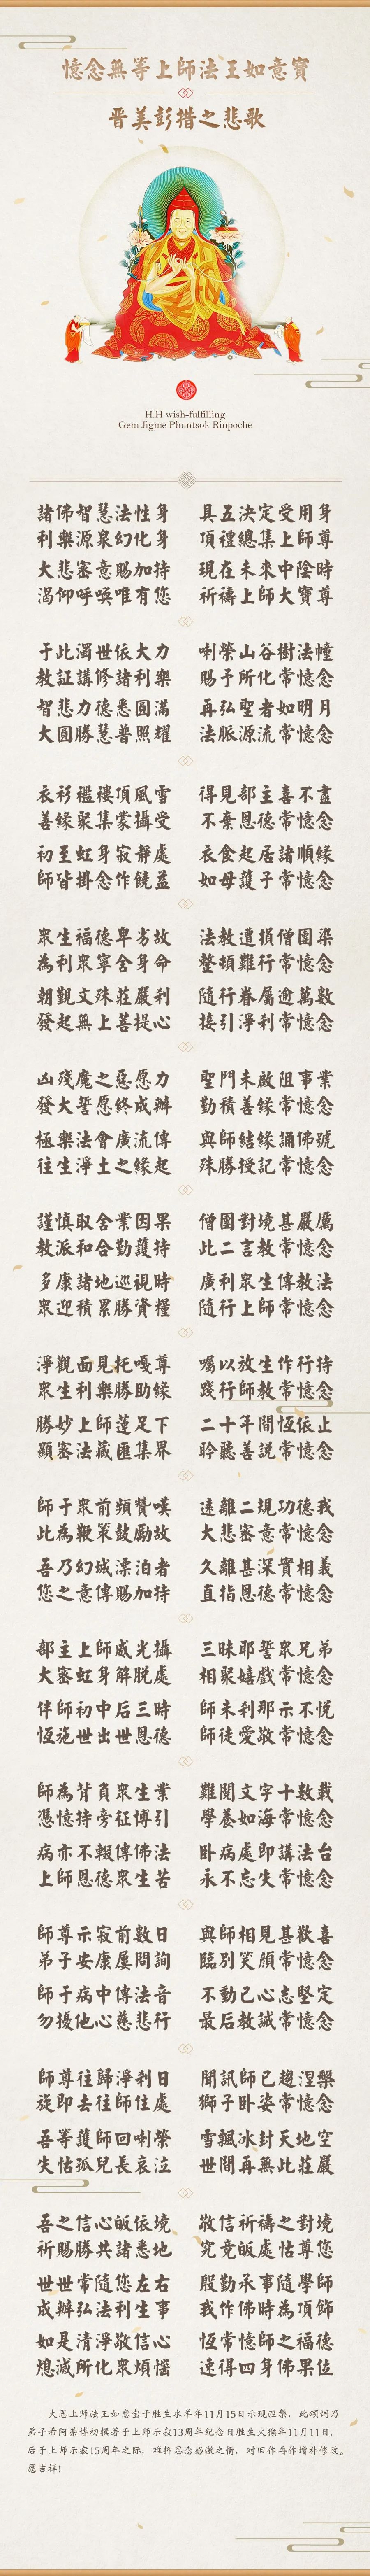 憶念無等上師法王如意寶
晉美彭措之悲歌
H.H wish-fulfilling
Gem Jigme Phuntsok Rinpoche
諸佛智慧法性身 具五決定受用身
利樂源泉幻化身 頂禮總集上師尊
大悲密意賜加持 現在未來中陰時
渴仰呼喚唯有您 祈禱上師大寶尊
于此濁世依大力 喇榮山谷樹法幢
教証講修諸利樂 賜予所化常憶念
智悲力德悉圓滿 再弘聖者如明月
大圓勝慧普照耀 法脈源流常憶念
衣衫襤褸頂風雪 得見部主喜不盡
善緣聚集蒙攝受 不棄恩德常憶念
初至虹身寂靜處 衣食起居諸順緣
師皆掛念作饒益 如母護子常憶念
眾生福德卑劣故 法教遭損僧團染
為利眾寧舍身命 整頓難行常憶念
朝觀文殊莊嚴剎 隨行眷屬逾萬數
發起無上菩提心 接引淨剎常憶念
凶殘魔之惡愿力 聖門未啟阻事業
發大誓愿終成辦 勤積善緣常憶念
極樂法會廣流傳 與師結緣誦佛號
往生淨土之緣起 殊勝授記常憶念
謹慎取舍業因果 僧團對境甚嚴厲
教派和合勤護持 此二言教常憶念
多康諸地巡視時 廣利眾生傳教法
眾迎積累勝資糧 隨行上師常憶念
淨觀面見托嘎尊 囑以放生作行持
眾生利樂勝助緣 踐行師教常憶念
勝妙上師蓮足下 二十年間恆依止
顯密法藏匯集界 聆聽善說常憶念
師于眾前頻贊嘆 遠離二現功德我
此為鞭策鼓勵故 大悲密意常憶念
吾乃幻城漂泊者 久離甚深實相義
您之意傳賜加持 直指恩德常憶念
部主上師威光攝 三昧耶誓眾兄弟
大密虹身解脫處 相聚嬉戲常憶念
伴師初中后三時 師未剎那示不悅
恆施世出世恩德 師徒愛敬常憶念
師為背負眾生業 難閱文字十數載
憑憶持旁征博引 學養如海常憶念
病亦不輟傳佛法 卧病處即講法台
上師恩德眾生苦 永不忘失常憶念
師尊示寂前數日 與師相見甚歡喜
弟子安康屢問詢 臨別笑顏常憶念
師于病中傳法音 不動己心志堅定
勿擾他心慈悲行 最后教誡常憶念
師尊往歸淨剎日 聞訊師已趨涅槃
旋即去往師住處 獅子卧姿常憶念
吾等護師回喇榮 雪飄冰封天地空
失怙孤兒長哀泣 世間再無此莊嚴
吾之信心皈依境 敬信祈禱之對境
祈賜勝共諸悉地 究竟皈處怙尊您
世世常隨您左右 殷勤承事隨學師
成辦弘法利生事 我作佛時為頂飾
如是清淨敬信心 恆常憶師之福德
熄滅所化眾煩惱 速得四身佛果位
大恩上師法王如意宝于胜生水羊年11月15日示现涅槃，此颂词乃
弟子希阿荣博初撰著于上师示寂13周年纪念日胜生火猴年11月11日，
后于上师示寂15周年之际，难抑思念感激之情，对旧作再作增补修改。
愿吉祥！